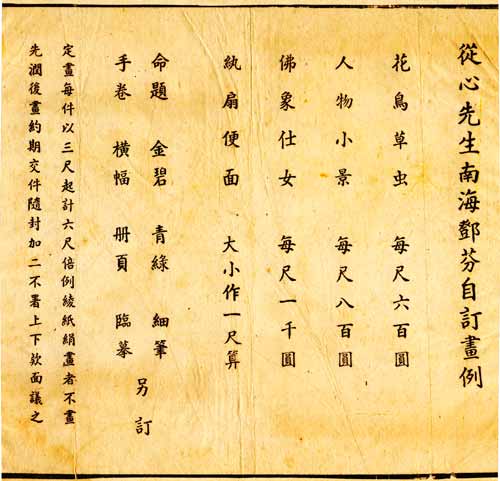 從心先生南海鄧芬自訂畫例
花鳥草虫　每尺六百圓
人物小景　每尺八百圓
佛象仕女　每尺一千圓
紈扇便面　大小作一尺算
命題　金碧　青綠　細筆
手卷　橫幅　册頁　臨摹　另訂
定畫每件以三尺起計六尺倍例綾紙絹畫者不畫
先潤後畫約期交件隨封加二不署上下欵面議之